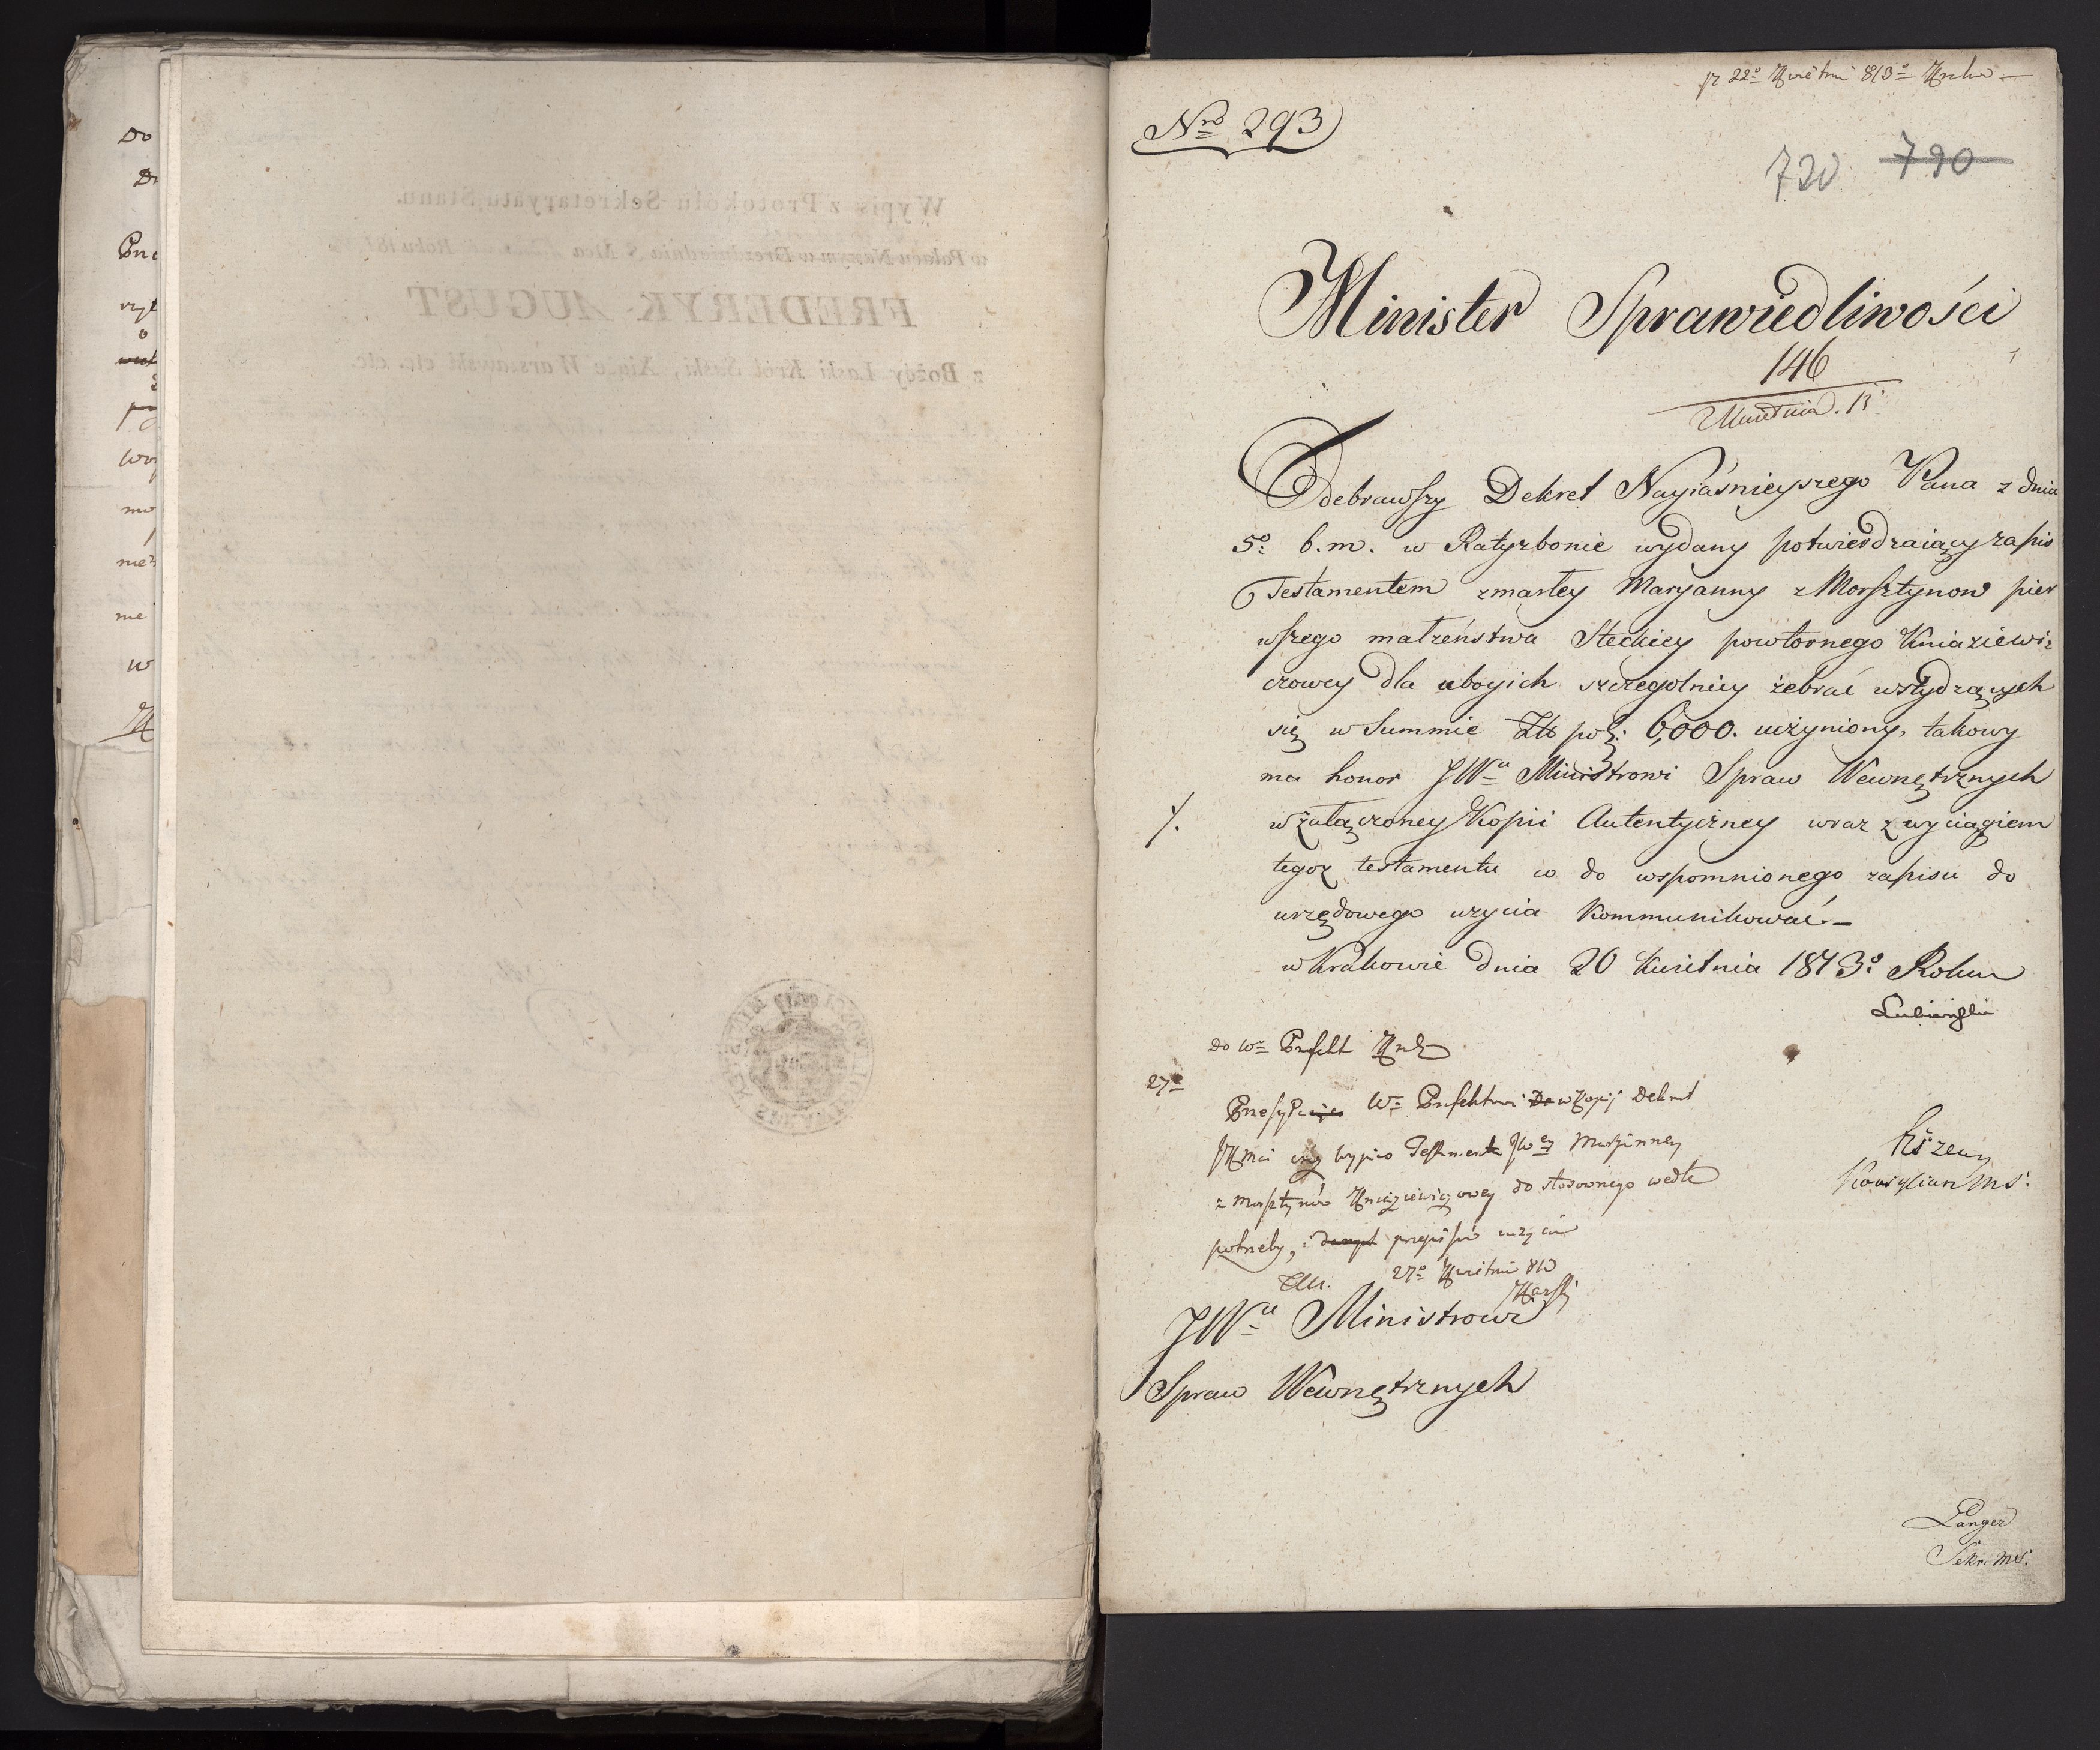 Do
Wypis z Protokołu Sekretaryatu Stanu.
FREDERYK AUGUST
z Bożéy Łaski Król Saski, Xiąże Warszawski etc. etc.
pr 22º Kwietni 813º
Nro 293
720 790
Minister Sprawiedliwości
146
Kwietnia. 13
Odebrawszy Dekret Nayiaśnieyszego Pana z dnia
5º b. m. w Ratyzbonie wydany potwierdzaiący zapis
Testamentem zmarłey Maryanny z Morsztynow pier
wszego małżeństwa Steckiey powtornego Kniaziewi-
czowey dla ubogich szczegolniey żebrać wstydzących
się w Summie Złł pol: 6,000. uczyniony, takowy
ma honor JWu Ministrowi Spraw Wewnętrznych
w załączoney Kopii Autentyczney wraz z wyciągiem
tegoż testamentu co do wspomnionego zapisu do
urzędowego uzycia Kommunikować.–
w Krakowie dnia 20 Kwietnia 1813º Roku
Łubieński
do Wº Prefekt
27º
Przesyła Wº Prefektowi w Kopij Dekret
JKMci wypis Testmentu JWey Maryanney
z Morsztynów Kniaziewiczowey do stosownego wedle
potrzeby, i przepisów użycia
27º Kwietni 813
Karski
JWu Ministrowi
Spraw Wewnętrznych
Langer
Sekr. MS.